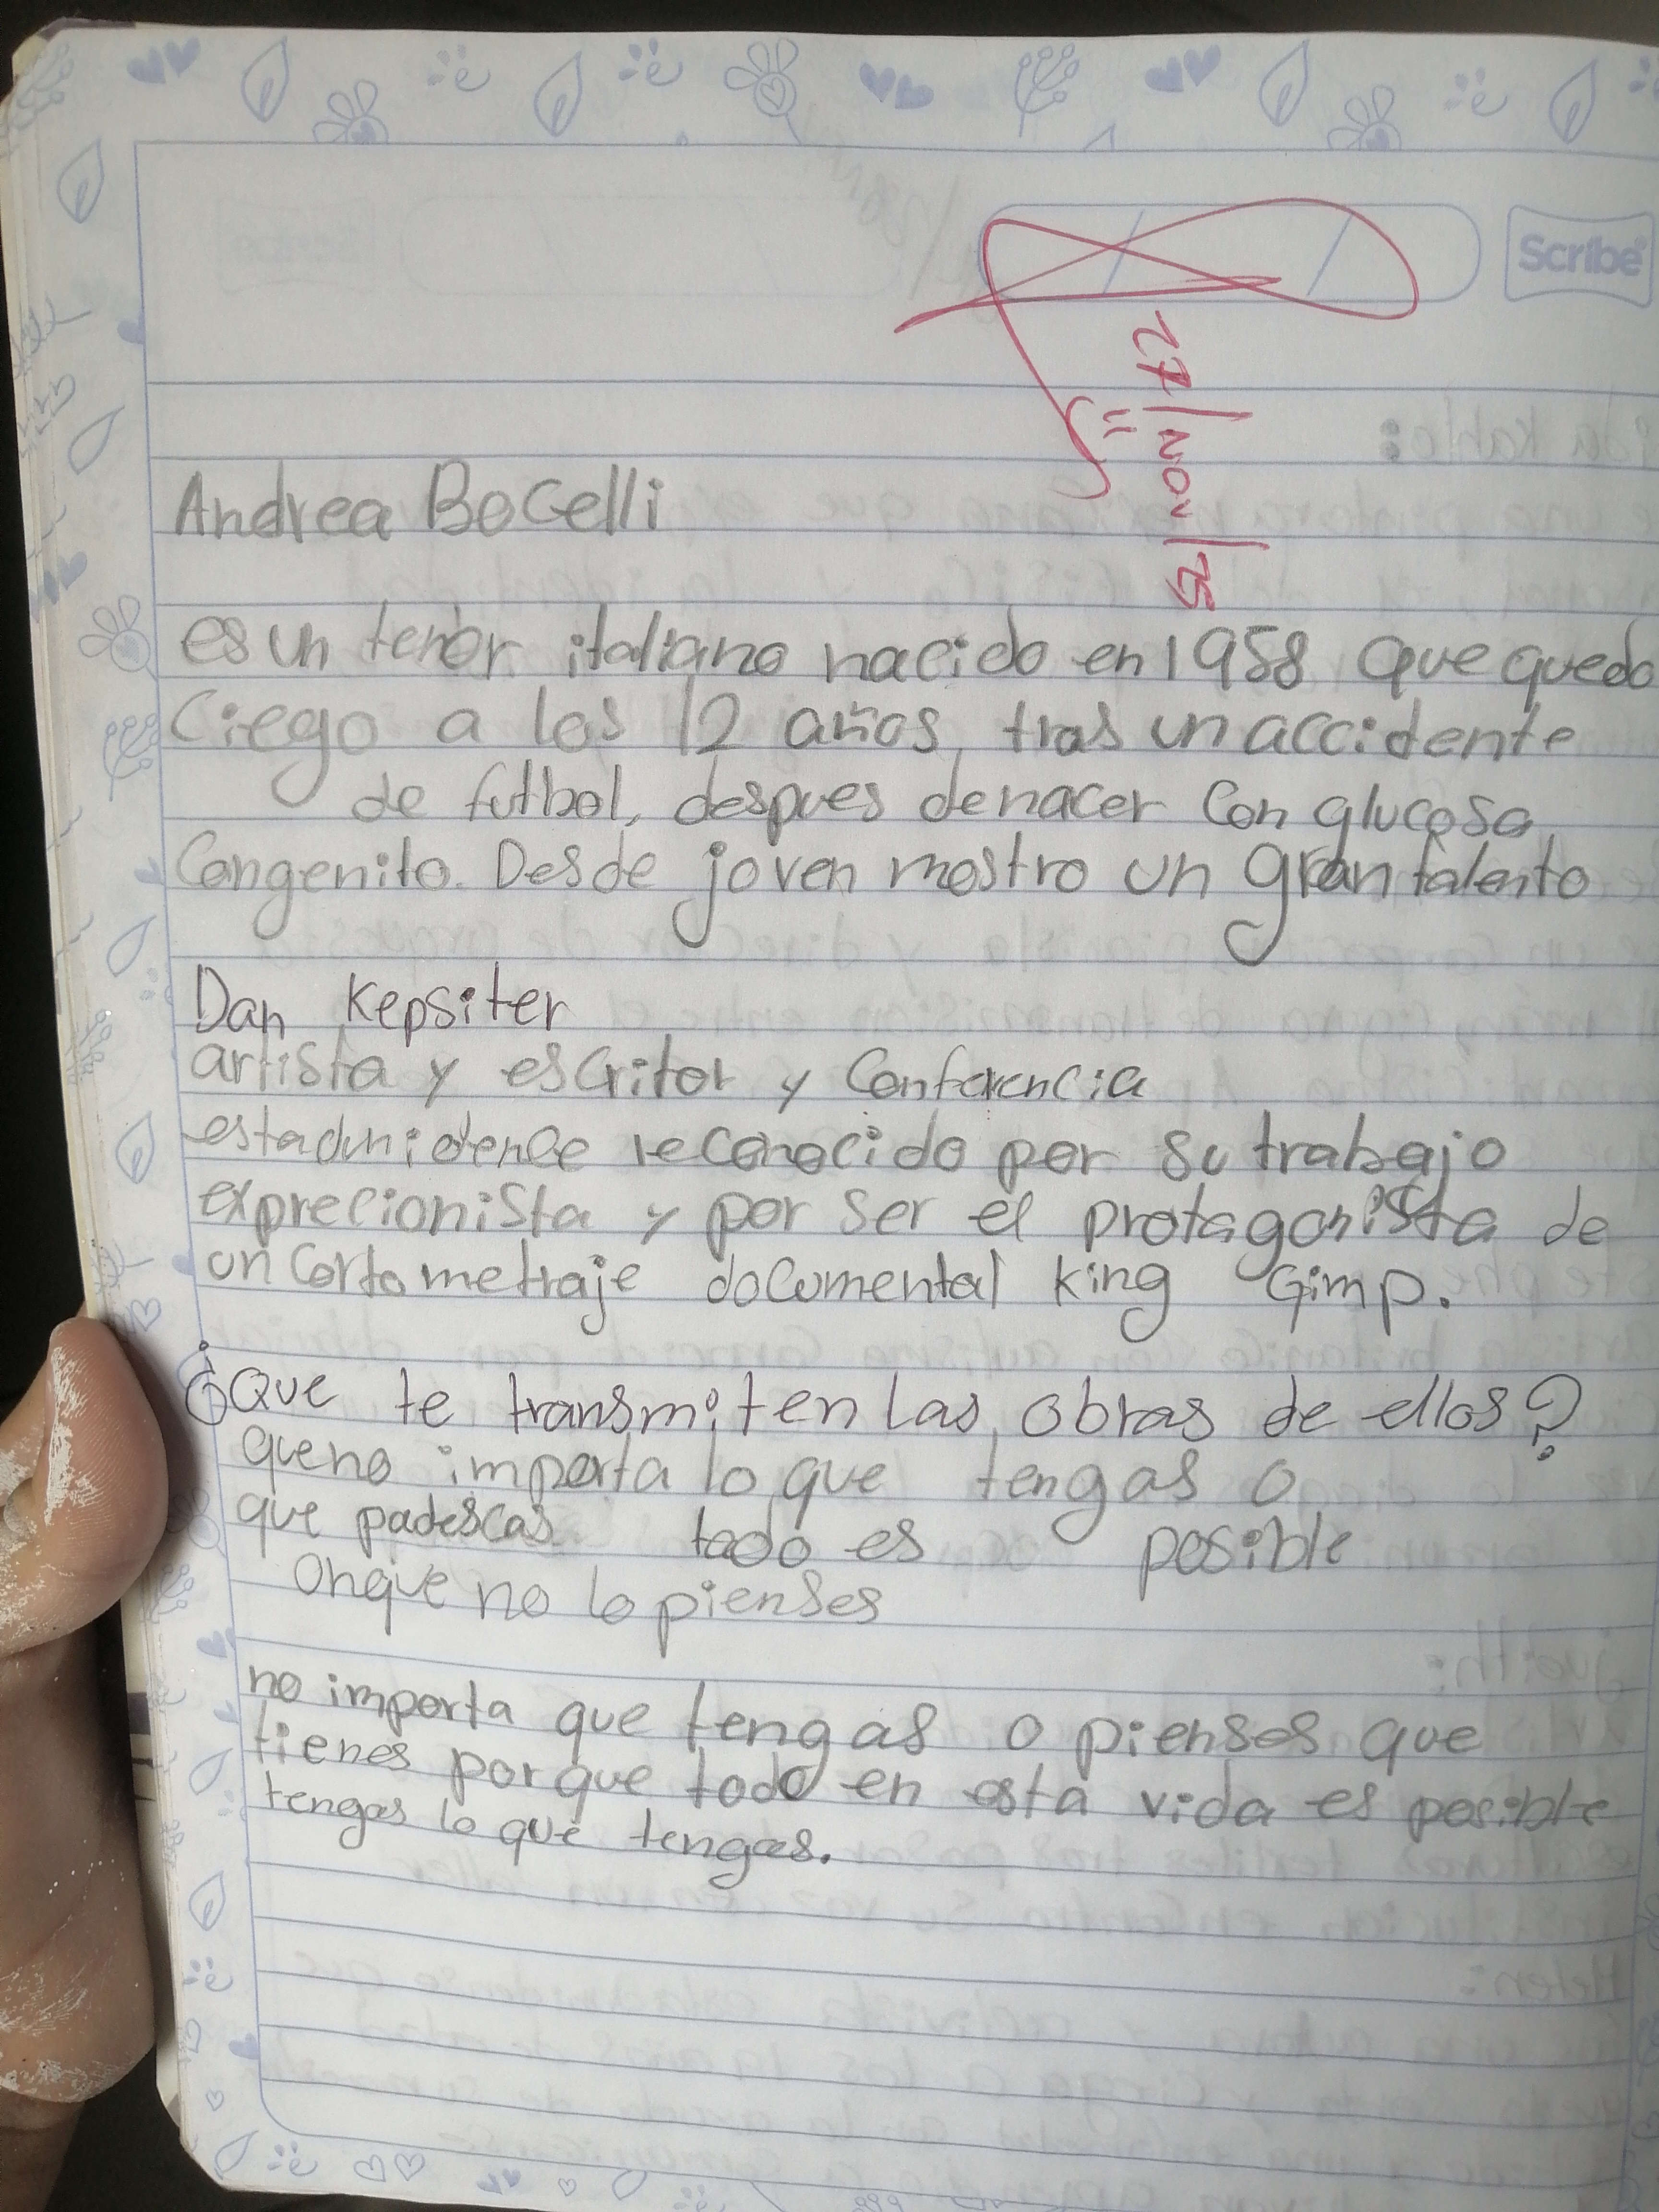 Scribe
27/Nov/25
Andrea Bocelli
es un tenor italiano nacido en 1958 que quedo
ciego a los 12 años, tras un accidente
de futbol, despues de nacer con glucosa
congenito. Desde joven mostro un gran talento
Dan Kepsiter
artista y escritor y conferencia
estadunidence reconocido por su trabajo
exprecionista y por ser el protagonista de
un cortometraje documental king Gimp.
¿Que te transmiten las obras de ellos?
que no importa lo que tengas o
que padescas todo es posible
Onque no lo pienses
no importa que tengas o pienses que
tienes porque todo en esta vida es posible
tengas lo que tengas.